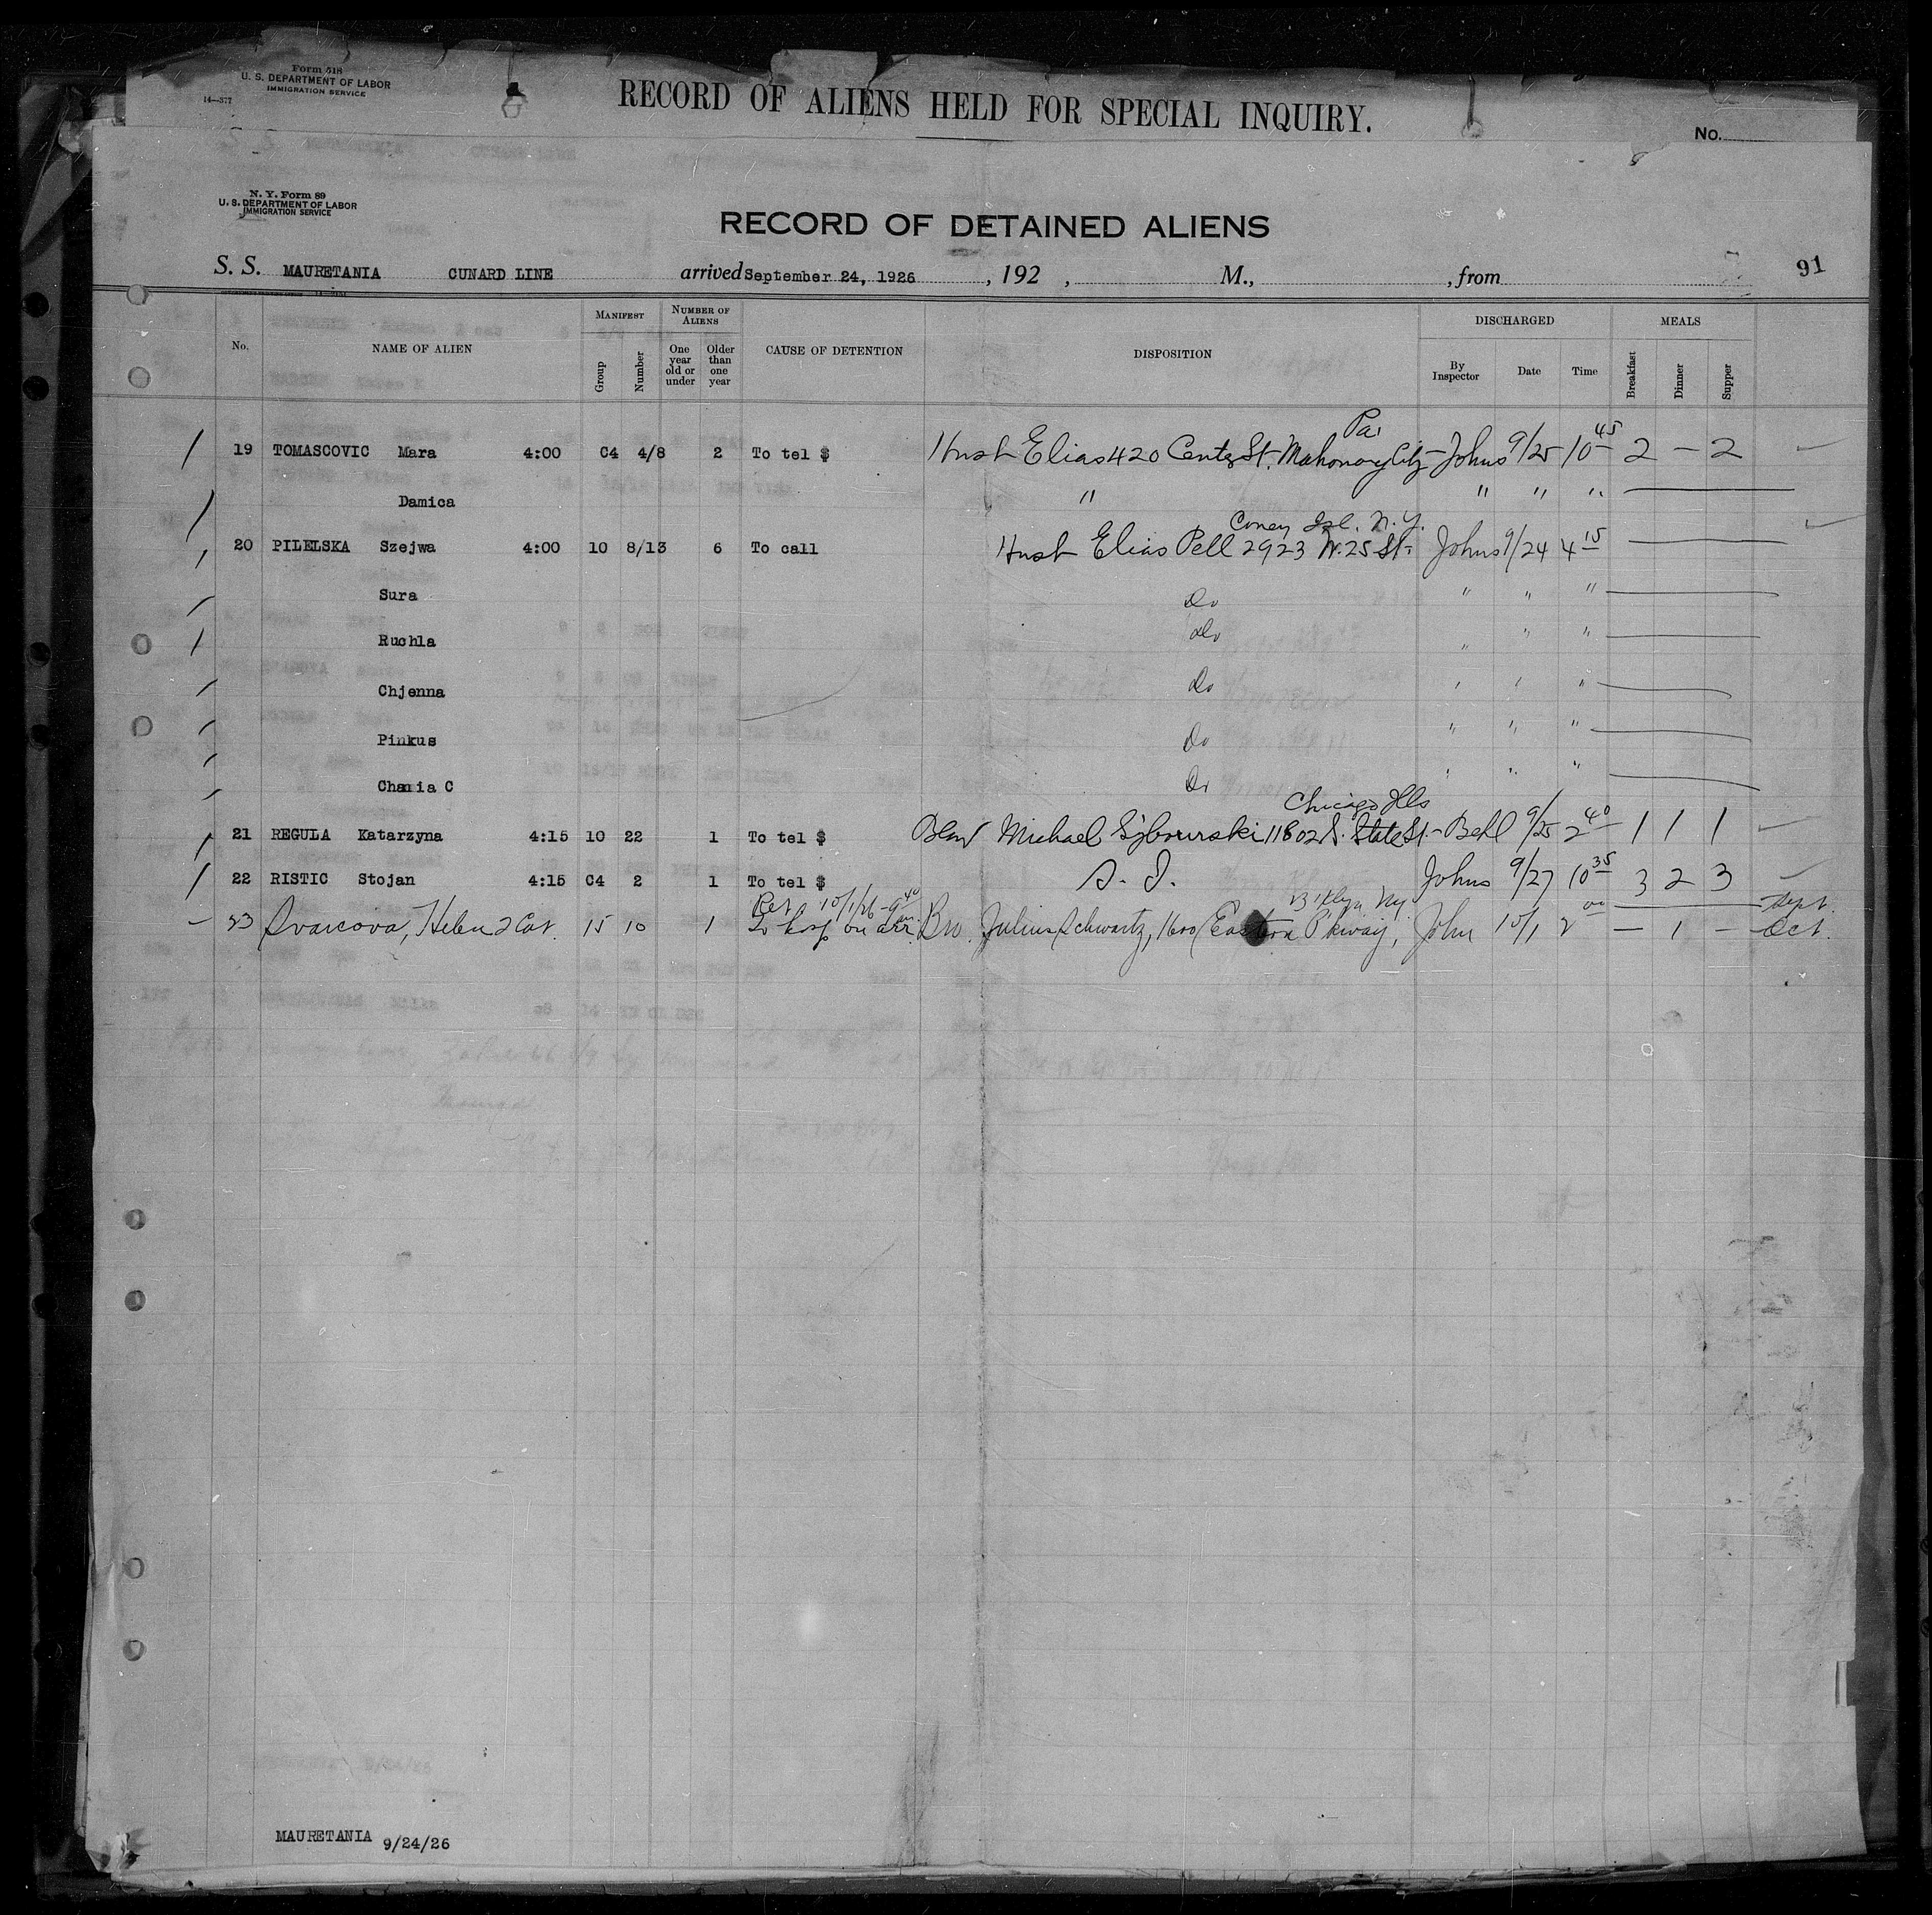 Form 518
U. S. DEPARTMENT OF LABOR
IMMIGRATION SERVICE
14—377
RECORD OF ALIENS HELD FOR SPECIAL INQUIRY.
No.
N. Y. Form 89
U. S. DEPARTMENT OF LABOR
IMMIGRATION SERVICE
RECORD OF DETAINED ALIENS
S. S. MAURETANIA CUNARD LINE arrived September 24, 1926, 192 , M., , from 91
No. NAME OF ALIEN MANIFEST Group Number NUMBER OF ALIENS One year old or under Older than one year CAUSE OF DETENTION DISPOSITION DISCHARGED By Inspector Date Time MEALS Breakfast Dinner Supper
Pa.
19 TOMASCOVIC Mara 4:00 C4 4/8 2 To tel $ Husb Elias 420 Centre St. Mahonoy City Johns 9/25 10 45 2 — 2
Damica " " " "
Coney Isl. N.Y.
20 PILELSKA Szejwa 4:00 10 8/13 6 To call Husb Elias Pell 2923 W. 25 St. Johns 9/24 4 15
Sura Do " " "
Ruchla Do " " "
Chjenna Do " " "
Pinkus Do " " "
Chania C Do " " "
Chicago Ills
21 REGULA Katarzyna 4:15 10 22 1 To tel $ Michael 11802 S. State St. Behl 9/25 2 40 1 1 1
22 RISTIC Stojan 4:15 C4 2 1 To tel $ S. I. Johns 9/27 10 35 3 2 3
10/1/26 - 9 40 B'klyn Ny. Sept.
23 Svarcova, Helen 2 Cab. 15 10 1 To hosp on arr. Bro. Julius Schwartz, 1600 Eastern P'kway, John 10/1 2 00 — 1 — Oct.
MAURETANIA 9/24/26